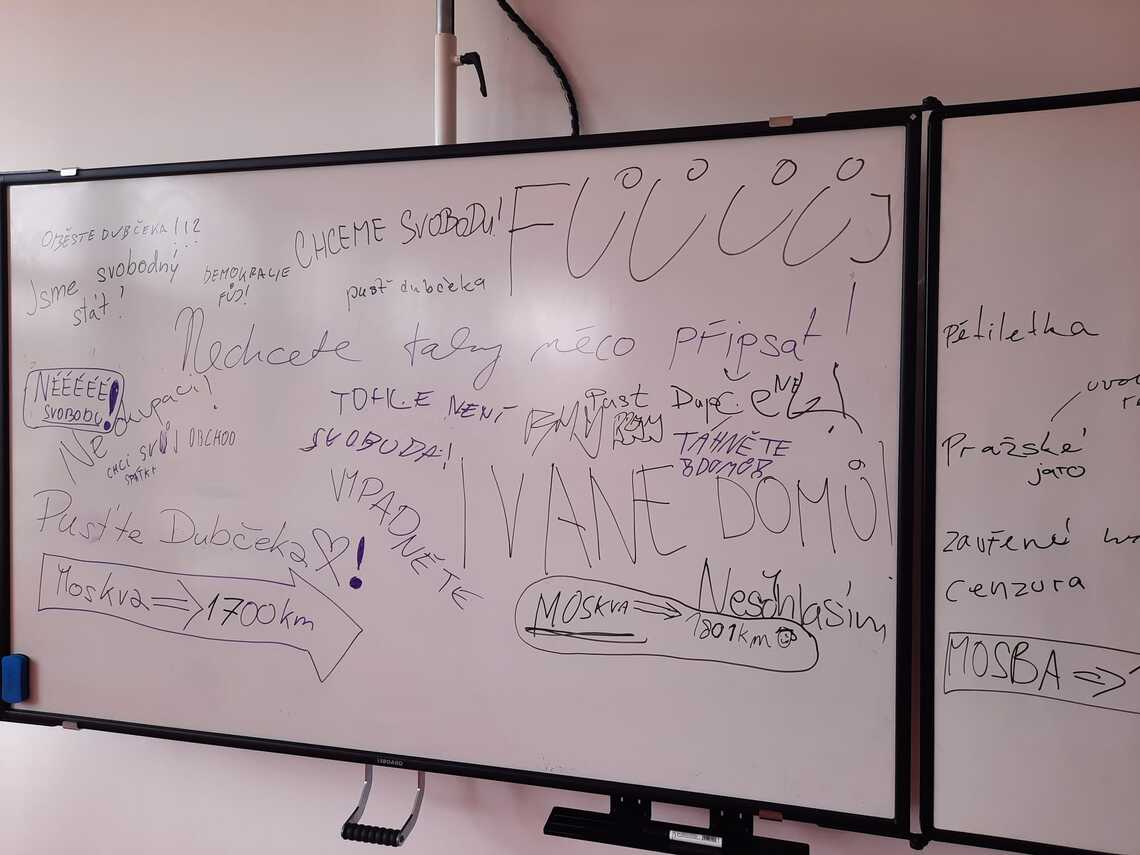 OBĚSTE DUBČEKA!!?
Jsme svobodný
stát!
DEMOKRACIE
FŮJ!
CHCEME SVOBODU!
pusť dubčeka
FŮŮŮŮJ
Nechcete taky něco připsat!
NÉÉÉÉÉ!
SVOBODU
NE okupaci!
CHCI SVŮJ OBCHOD
SPÁTKY
TOHLE NENÍ
SVOBODA!
Pusť
NE
TÁHNĚTE
Pusťte Dubčeka!
VYPADNĚTE
IVANE DOMŮ!
Moskva ⇒ 1700km
MOSKVA ⇒ 1801km
Nesouhlasím
pětiletka
Pražské
jaro
zavření
cenzura
MOSBA ⇒